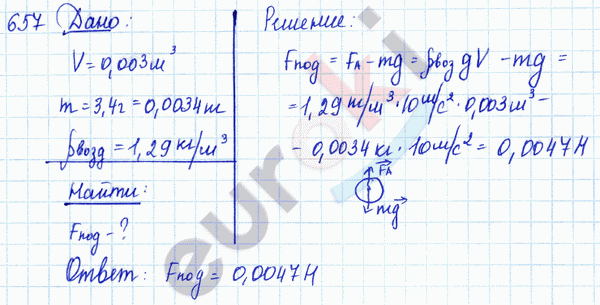 657 Дано:
V = 0,003 м³
m = 3,4г = 0,0034 кг
ρвозд = 1,29 кг/м³
Найти:
Fпод - ?
Решение:
Fпод = FA - mg = ρвоз gV - mg =
= 1,29 кг/м³ · 10 м/с² · 0,003 м³ -
- 0,0034 кг · 10 м/с² = 0,0047 Н
FA
mg
Ответ: Fпод = 0,0047 Н
euroki